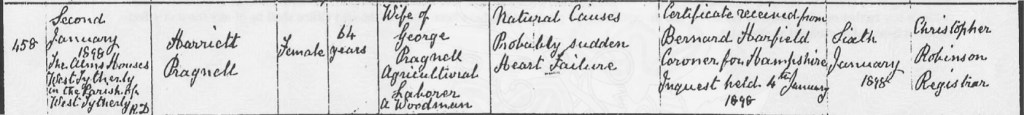 458
Second
January
1898
The Alms Houses
West Tytherly
in the Parish of
West Tytherly R.D
Harriett
Pragnell
Female
64
years
Wife of
George
Pragnell
Agricultural
Laborer
a Woodman
Natural Causes
Probably sudden
Heart Failure
Certificate received from
Bernard Harfield
Coroner for Hampshire
Inquest held 4th January
1898
Sixth
January
1898
Christopher
Robinson
Registrar